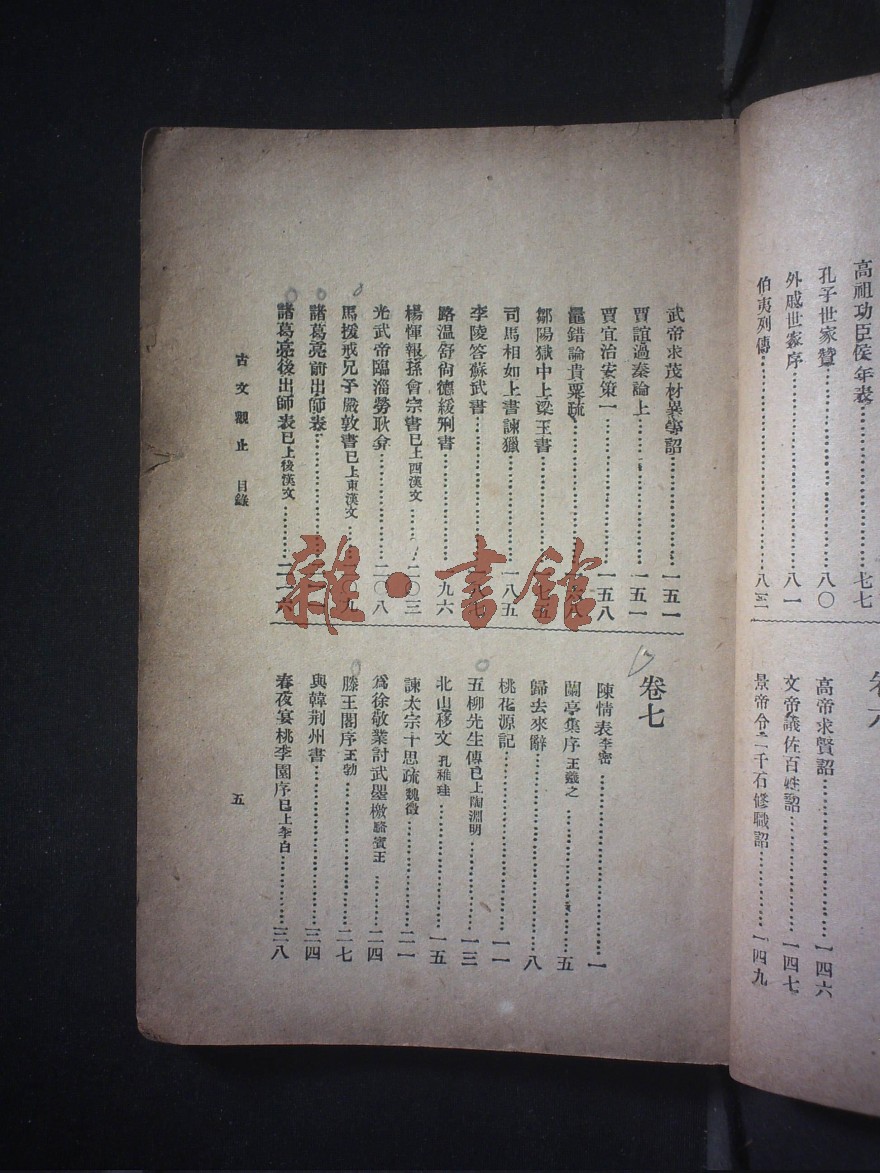 高祖功臣侯年表……七七
孔子世家贊……八〇
外戚世家序……八一
伯夷列傳……八三
高帝求賢詔……一四六
文帝議佐百姓詔……一四七
景帝令二千石修職詔……一四九
武帝求茂材異等詔……一五一
賈誼過秦論上……一五一
賈宜治安策一……一五八
鼂錯論貴粟疏
鄒陽獄中上梁王書
司馬相如上書諫獵……一八五
李陵答蘇武書
路溫舒尙德緩刑書……九六
楊惲報孫會宗書已上西漢文……二〇三
光武帝臨淄勞耿弇……二〇八
馬援戒兄子嚴敦書已上東漢文……二〇九
諸葛亮前出師表
諸葛亮後出師表已上後漢文……二一六
卷七
陳情表李密……一
蘭亭集序王羲之……五
歸去來辭……八
桃花源記……一一
五柳先生傳已上陶淵明……一三
北山移文孔稚珪……一五
諫太宗十思疏魏徵……二一
爲徐敬業討武曌檄駱賓王……二四
滕王閣序王勃……二七
與韓荆州書……三四
春夜宴桃李園序已上李白……三八
古文觀止 目錄
五
雜·書館